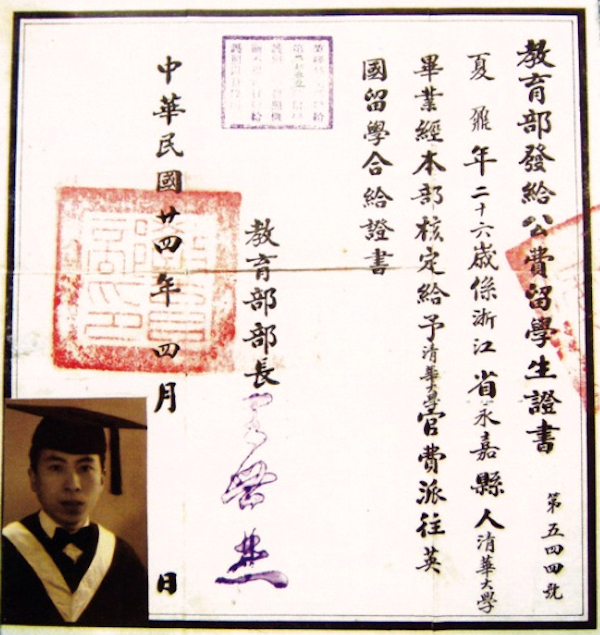 教育部發給公費留學生證書
第五四四號
夏鼐年二十六歲係浙江省永嘉縣人清華大學
畢業經本部核定給予清華學官費派往英
國留學合給證書
教育部部長王世杰
中華民國廿四年四月 日